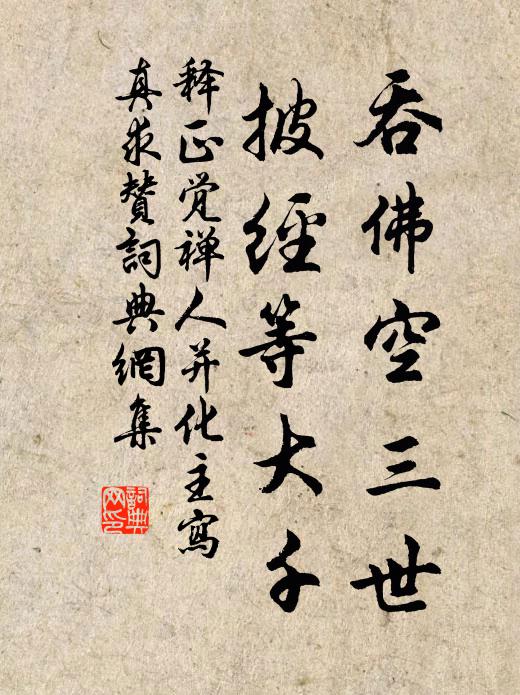 吞佛空三世
披經等大千
释正觉禅人并化主寫
真求贊詞典網集
詞典网印